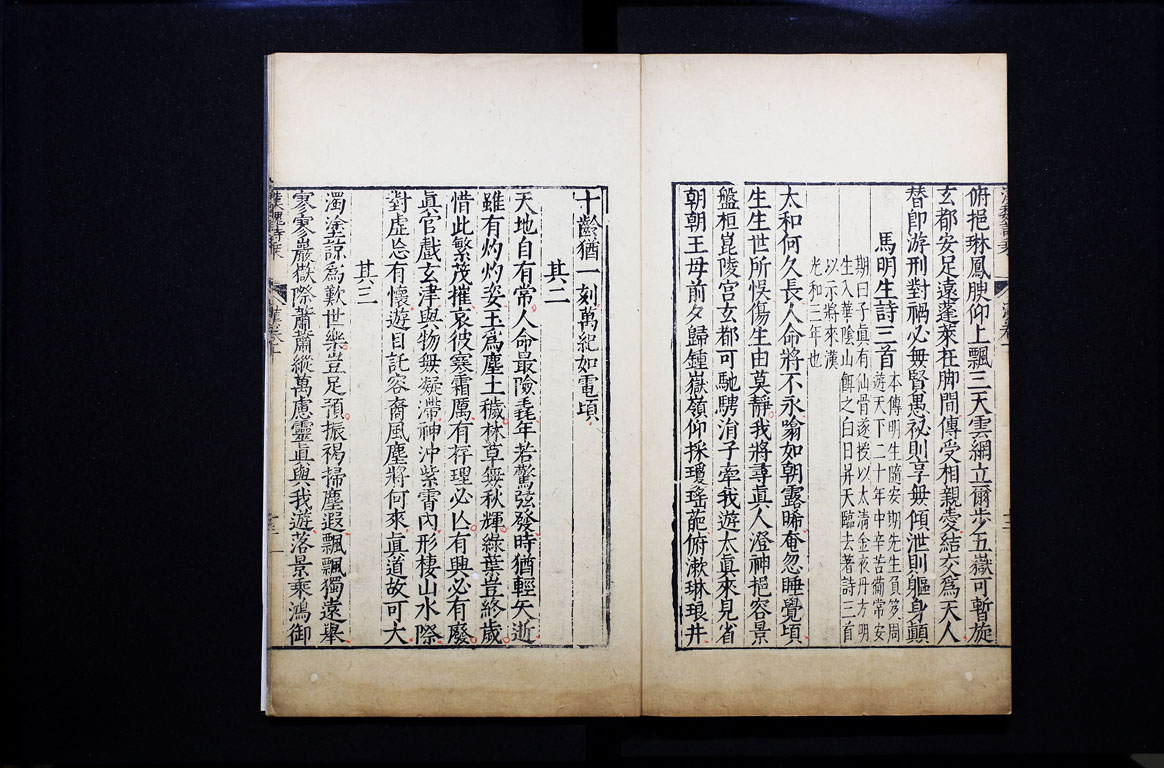 俯挹琳鳳腴仰上飄三天雲綱立爾步五嶽可暫旋
玄都安足遠蓬萊在脚間傳受相親愛結交為天人
替即游刑對禍必無賢愚祕則享無傾泄則軀身顛
馬明生詩三首
本傳明生隨安期先生負笈周
遊天下二十年中辛苦備常安
期曰子眞有仙骨遂授以太清金液丹方明
生入華陰山餌之白日昇天臨去著詩三首
以示將來漢
光和三年也
太和何久長人命將不永噏如朝露晞奄忽睡覺頃
生生世所悞傷生由莫靜我將尋眞人澄神挹容景
盤桓崑陵宮玄都可馳騁涓子牽我遊太眞來見省
朝朝王母前夕歸鍾嶽嶺仰採瓊瑤葩俯漱琳琅井
十齡猶一刻萬紀如電頃
其二
天地自有常人命最險毳年若驚弦發時猶輕矢逝
雖有灼灼姿玉為塵土穢林草無秋輝綠葉豈終歲
惜此繁茂摧哀彼寒霜厲有存理必亾有興必有廢
眞官戲玄津與物無凝滯神沖紫霄內形棲山水際
對虛忘有懷遊目託容裔風塵將何來眞道故可大
其三
濁塗諒為歎世樂豈足預振褐掃塵遐飄飄獨遠舉
寥寥巖嶽際蕭蕭縱萬慮靈眞與我遊落景乘鴻御
漢魏詩乘